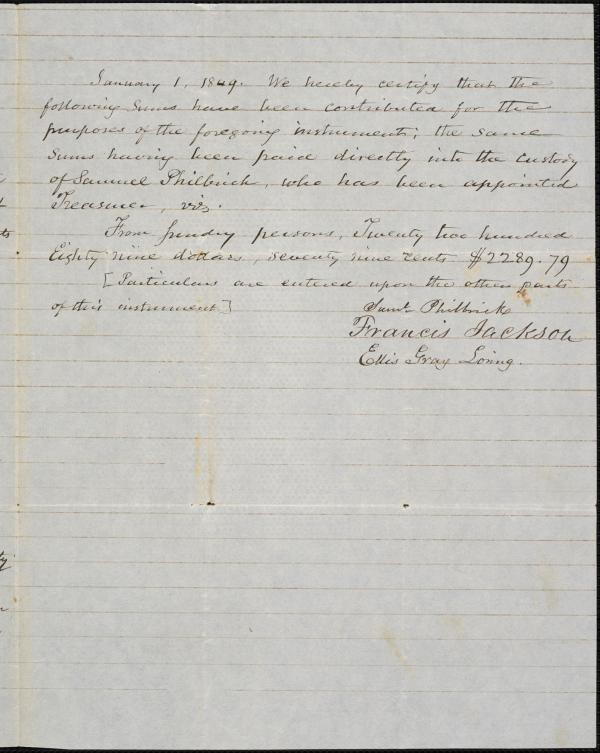 January 1, 1849. We hereby certify that the
following sums have been contributed for the
purposes of the foregoing instrument; the same
sums having been paid directly into the custody
of Samuel Philbrick, who has been appointed
Treasurer, viz.
From sundry persons, Twenty two hundred
Eighty nine dollars, seventy nine cents $2289.79
[Particulars are entered upon the other parts
of this instrument]
Saml. Philbrick
Francis Jackson
Ellis Gray Loring.